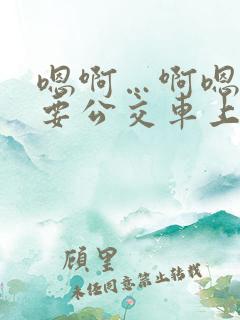 嗯啊…啊嗯
要公交车上
顾里
未经同意禁止转载